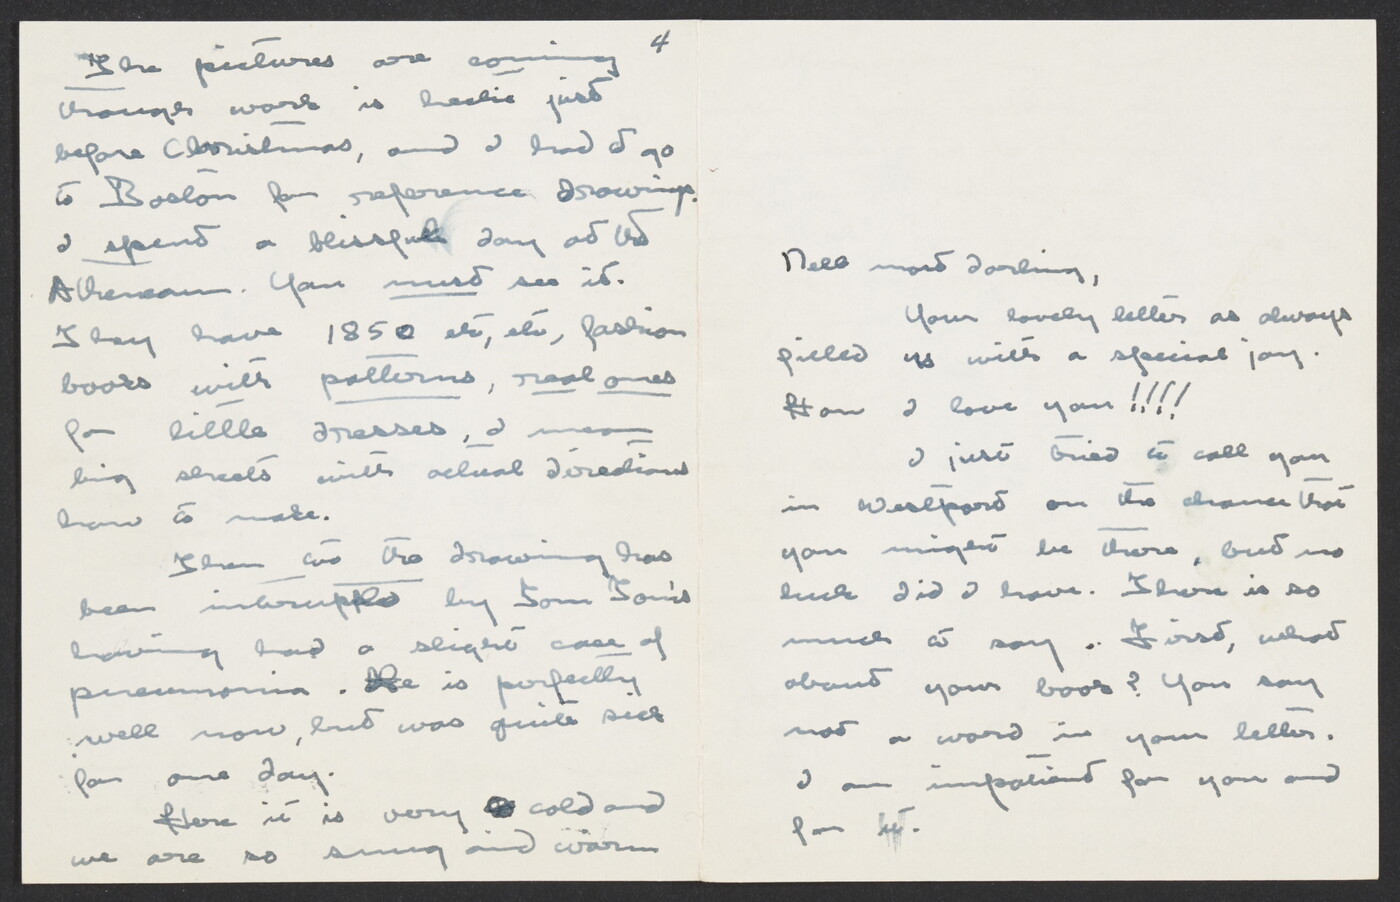 4
The pictures are coming
though work is hectic just
before Christmas, and I had to go
to Boston for reference drawings.
I spent a blissful day at the
Atheneaum. You must see it.
They have 1850 etc, etc, fashion
books with patterns, real ones
for little dresses, I mean
big sheets with actual directions
how to make.
Then too the drawing has
been interupted by Tom Tom's
having had a slight case of
pneumonia. He is perfectly
well now, but was quite sick
for one day.
Here it is very cold and
we are so snug and warm
Nell most darling,
Your lovely letter as always
filled us with a special joy.
How I love you!!!!
I just tried to call you
in Westport on the chance that
you might be there, but no
luck did I have. There is so
much to say.. First, what
about your book? You say
not a word in your letter.
I am impatient for you and
for it.